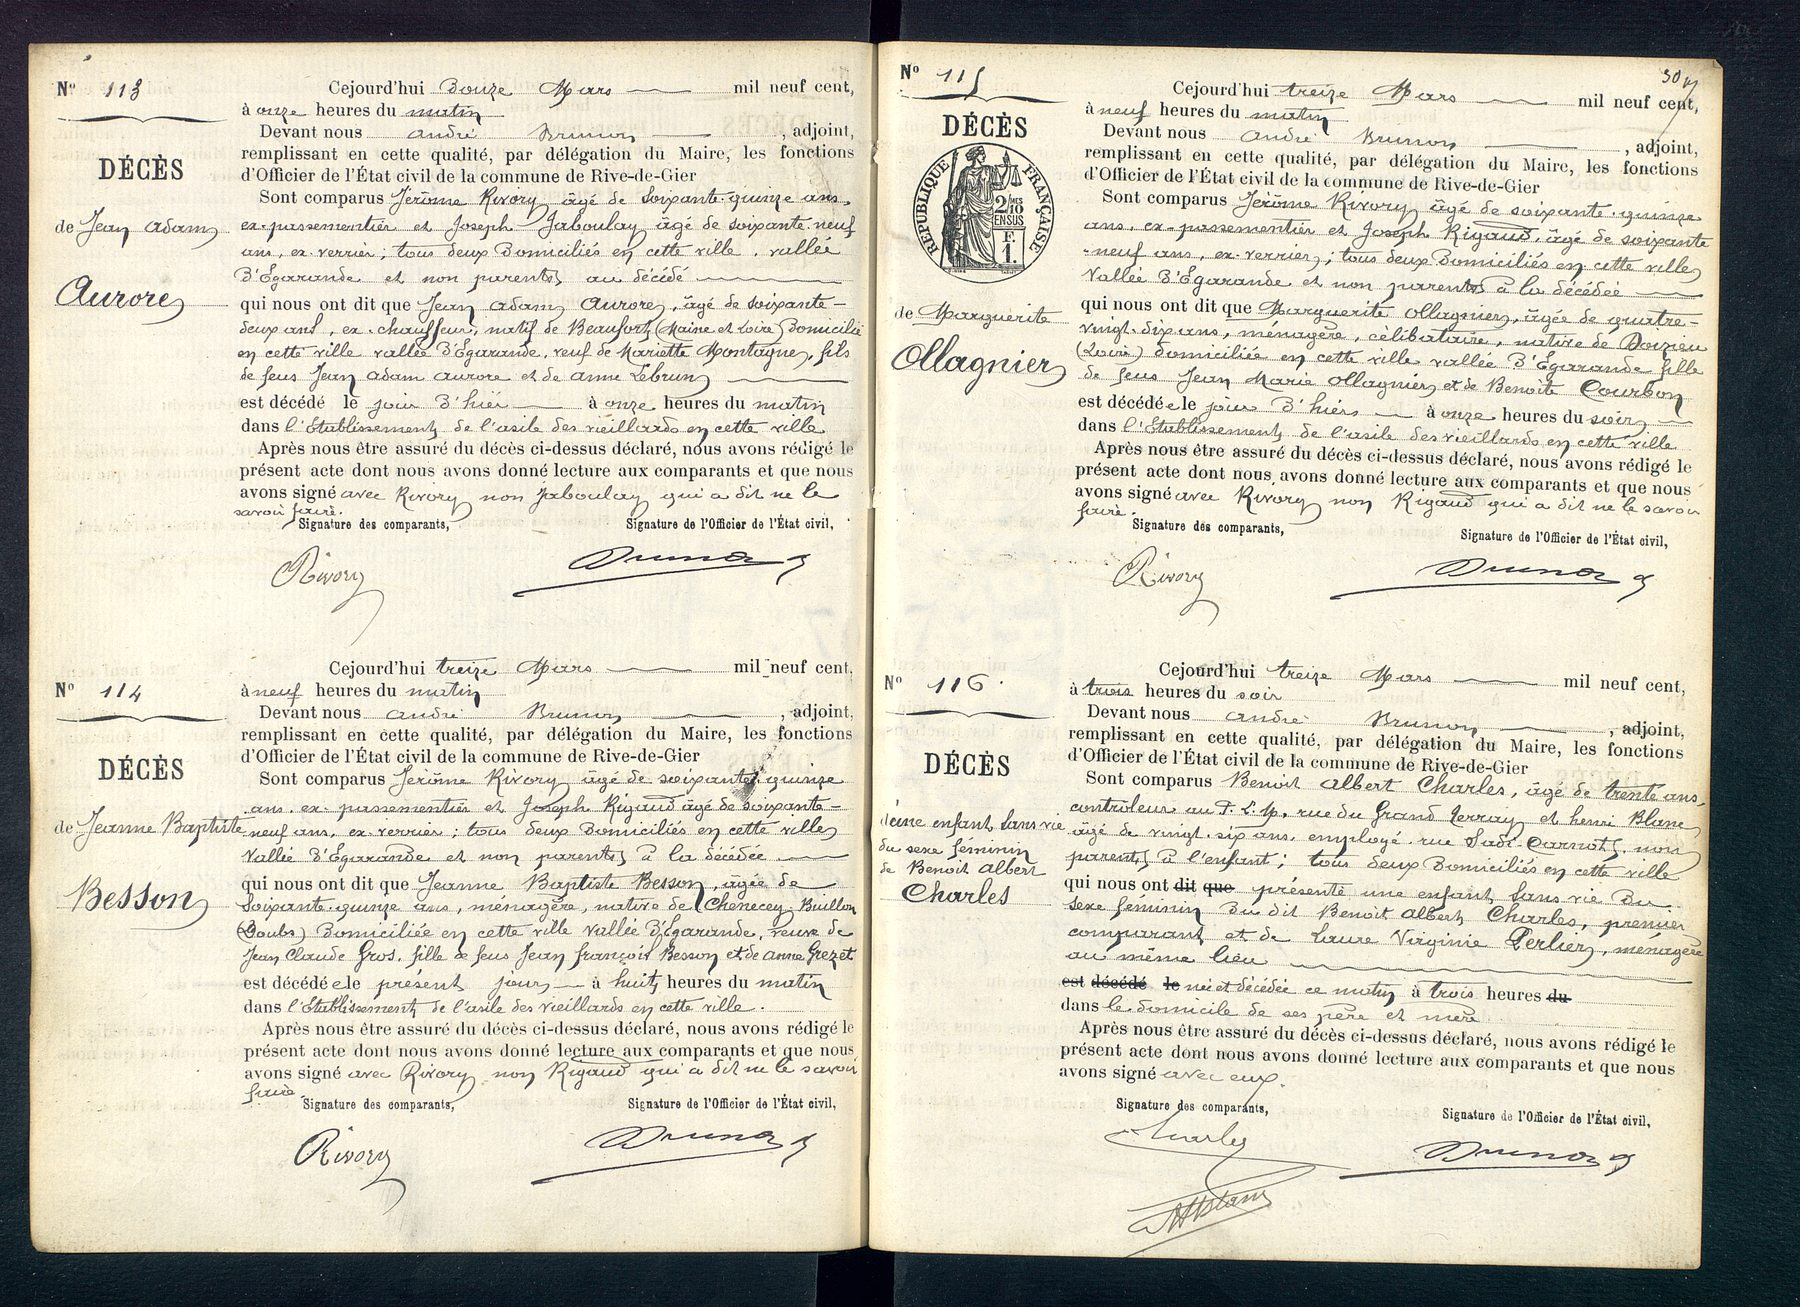 Nº 113
DÉCÈS
de Jean Adam
Aurore
Cejourd'hui Douze Mars mil neuf cent,
à onze heures du matin
Devant nous André Brunon, adjoint,
remplissant en cette qualité, par délégation du Maire, les fonctions
d'Officier de l'État civil de la commune de Rive-de-Gier
Sont comparus Jérôme Rivory âgé de soixante-quinze ans,
ex-passementier et Joseph Jaboulay âgé de soixante neuf
ans, ex-verrier; tous deux Domiciliés en cette ville, vallée
D'Égarande et non parents au décédé
qui nous ont dit que Jean Adam Aurore, âgé de soixante-
deux ans, ex-chauffeur, natif de Beaufort (Maine et Loire) Domicilié
en cette ville vallée D'Égarande, veuf de Mariette Montagne, fils
de feus Jean Adam Aurore et de Anne Lebrun
est décédé le jour D'hier à onze heures du matin
dans l'Etablissement de l'asile des vieillards en cette ville
Après nous être assuré du décès ci-dessus déclaré, nous avons rédigé le
présent acte dont nous avons donné lecture aux comparants et que nous
avons signé avec Rivory non Jaboulay qui a dit ne le
savoir faire.
Signature des comparants, Signature de l'Officier de l'État civil,
Rivory Brunon
Nº 114
DÉCÈS
de Jeanne Baptiste
Besson
Cejourd'hui treize Mars mil neuf cent,
à neuf heures du matin
Devant nous André Brunon, adjoint,
remplissant en cette qualité, par délégation du Maire, les fonctions
d'Officier de l'État civil de la commune de Rive-de-Gier
Sont comparus Jérôme Rivory âgé de soixante quinze
ans, ex-passementier et Joseph Rigaud âgé de soixante-
neuf ans, ex-verrier; tous deux Domiciliés en cette ville
Vallée D'Égarande et non parents à la décédée
qui nous ont dit que Jeanne Baptiste Besson, âgée de
Soixante-quinze ans, ménagère, native de Chenecey-Buillon
(Doubs) Domiciliée en cette ville Vallée D'Égarande, veuve de
Jean Claude Gros, fille de feus Jean François Besson et de Anne Grezet
est décédée le présent jour à huit heures du matin
dans l'Etablissement de l'asile des vieillards en cette ville.
Après nous être assuré du décès ci-dessus déclaré, nous avons rédigé le
présent acte dont nous avons donné lecture aux comparants et que nous
avons signé avec Rivory non Rigaud qui a dit ne le savoir
faire.
Signature des comparants, Signature de l'Officier de l'État civil,
Rivory Brunon
30
Nº 115
DÉCÈS
RÉPUBLIQUE FRANÇAISE
2/10 MES
EN SUS
F.
1.
de Marguerite
Ollagnier
Cejourd'hui treize Mars mil neuf cent,
à neuf heures du matin
Devant nous André Brunon, adjoint,
remplissant en cette qualité, par délégation du Maire, les fonctions
d'Officier de l'État civil de la commune de Rive-de-Gier
Sont comparus Jérôme Rivory âgé de soixante-quinze
ans, ex-passementier et Joseph Rigaud, âgé de soixante
-neuf ans, ex-verrier; tous deux Domiciliés en cette ville
Vallée D'Égarande et non parents à la décédée
qui nous ont dit que Marguerite Ollagnier, âgée de quatre-
vingt-dix ans, ménagère, célibataire, native de Doizieu
(Loire) domiciliée en cette ville vallée D'Égarande fille
de feus Jean Marie Ollagnier et de Benoîte Courbon
est décédée le jour D'hier à onze heures du soir
dans l'Etablissement de l'asile des vieillards en cette ville
Après nous être assuré du décès ci-dessus déclaré, nous avons rédigé le
présent acte dont nous avons donné lecture aux comparants et que nous
avons signé avec Rivory non Rigaud qui a dit ne le savoir
faire.
Signature des comparants, Signature de l'Officier de l'État civil,
Rivory Brunon
Nº 116
DÉCÈS
d'une enfant sans vie
du sexe féminin
de Benoit Albert
Charles
Cejourd'hui treize Mars mil neuf cent,
à trois heures du soir
Devant nous André Brunon, adjoint,
remplissant en cette qualité, par délégation du Maire, les fonctions
d'Officier de l'État civil de la commune de Rive-de-Gier
Sont comparus Benoit Albert Charles, âgé de trente ans,
controleur au P.L.M. rue du Grand Verray et henri Blanc
âgé de vingt-six ans, employé rue Sadi-Carnot, non
parents à l'enfant; tous deux Domiciliés en cette ville
qui nous ont dit que présenté une enfant sans vie Du
Sexe féminin Du dit Benoit Albert Charles, premier
comparant et de Laure Virginie Perlier, ménagère
au même lieu
est décédé le née et décédée ce matin à trois heures du
dans le domicile de ses père et mère
Après nous être assuré du décès ci-dessus déclaré, nous avons rédigé le
présent acte dont nous avons donné lecture aux comparants et que nous
avons signé avec eux.
Signature des comparants, Signature de l'Officier de l'État civil,
Charles Brunon
HBlanc